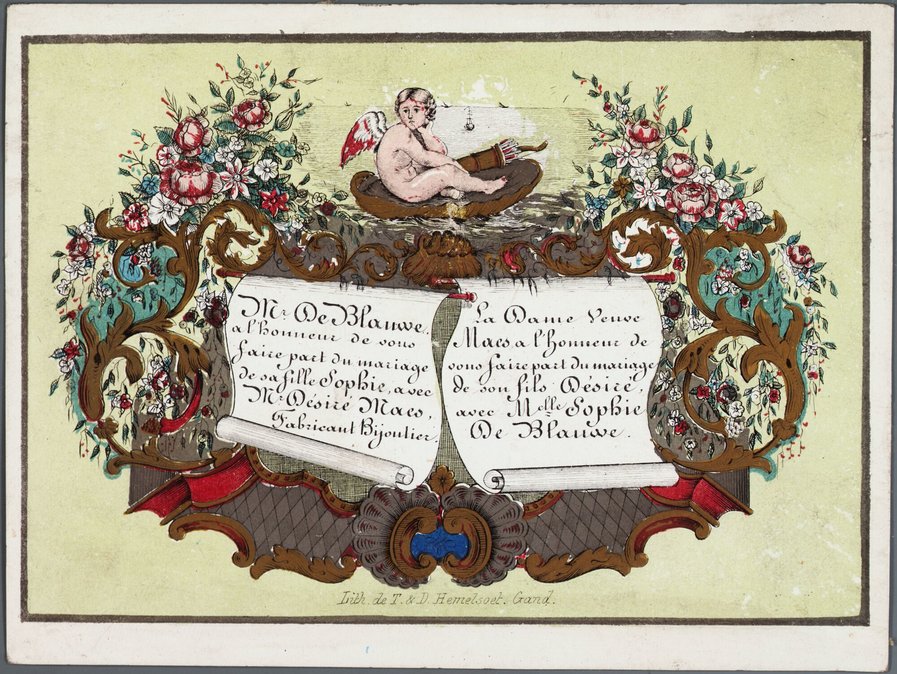 Mr. De Blauwe,
a l'honneur de vous
faire part du mariage
de sa fille Sophie, avec
Mr. Désiré Maes,
Fabricant Bijoutier
La Dame Veuve
Maes a l'honneur de
vous faire part du mariage
de son fils Désiré,
avec Melle Sophie
De Blauwe.
Lith. de T. & D. Hemelsoet. Gand.